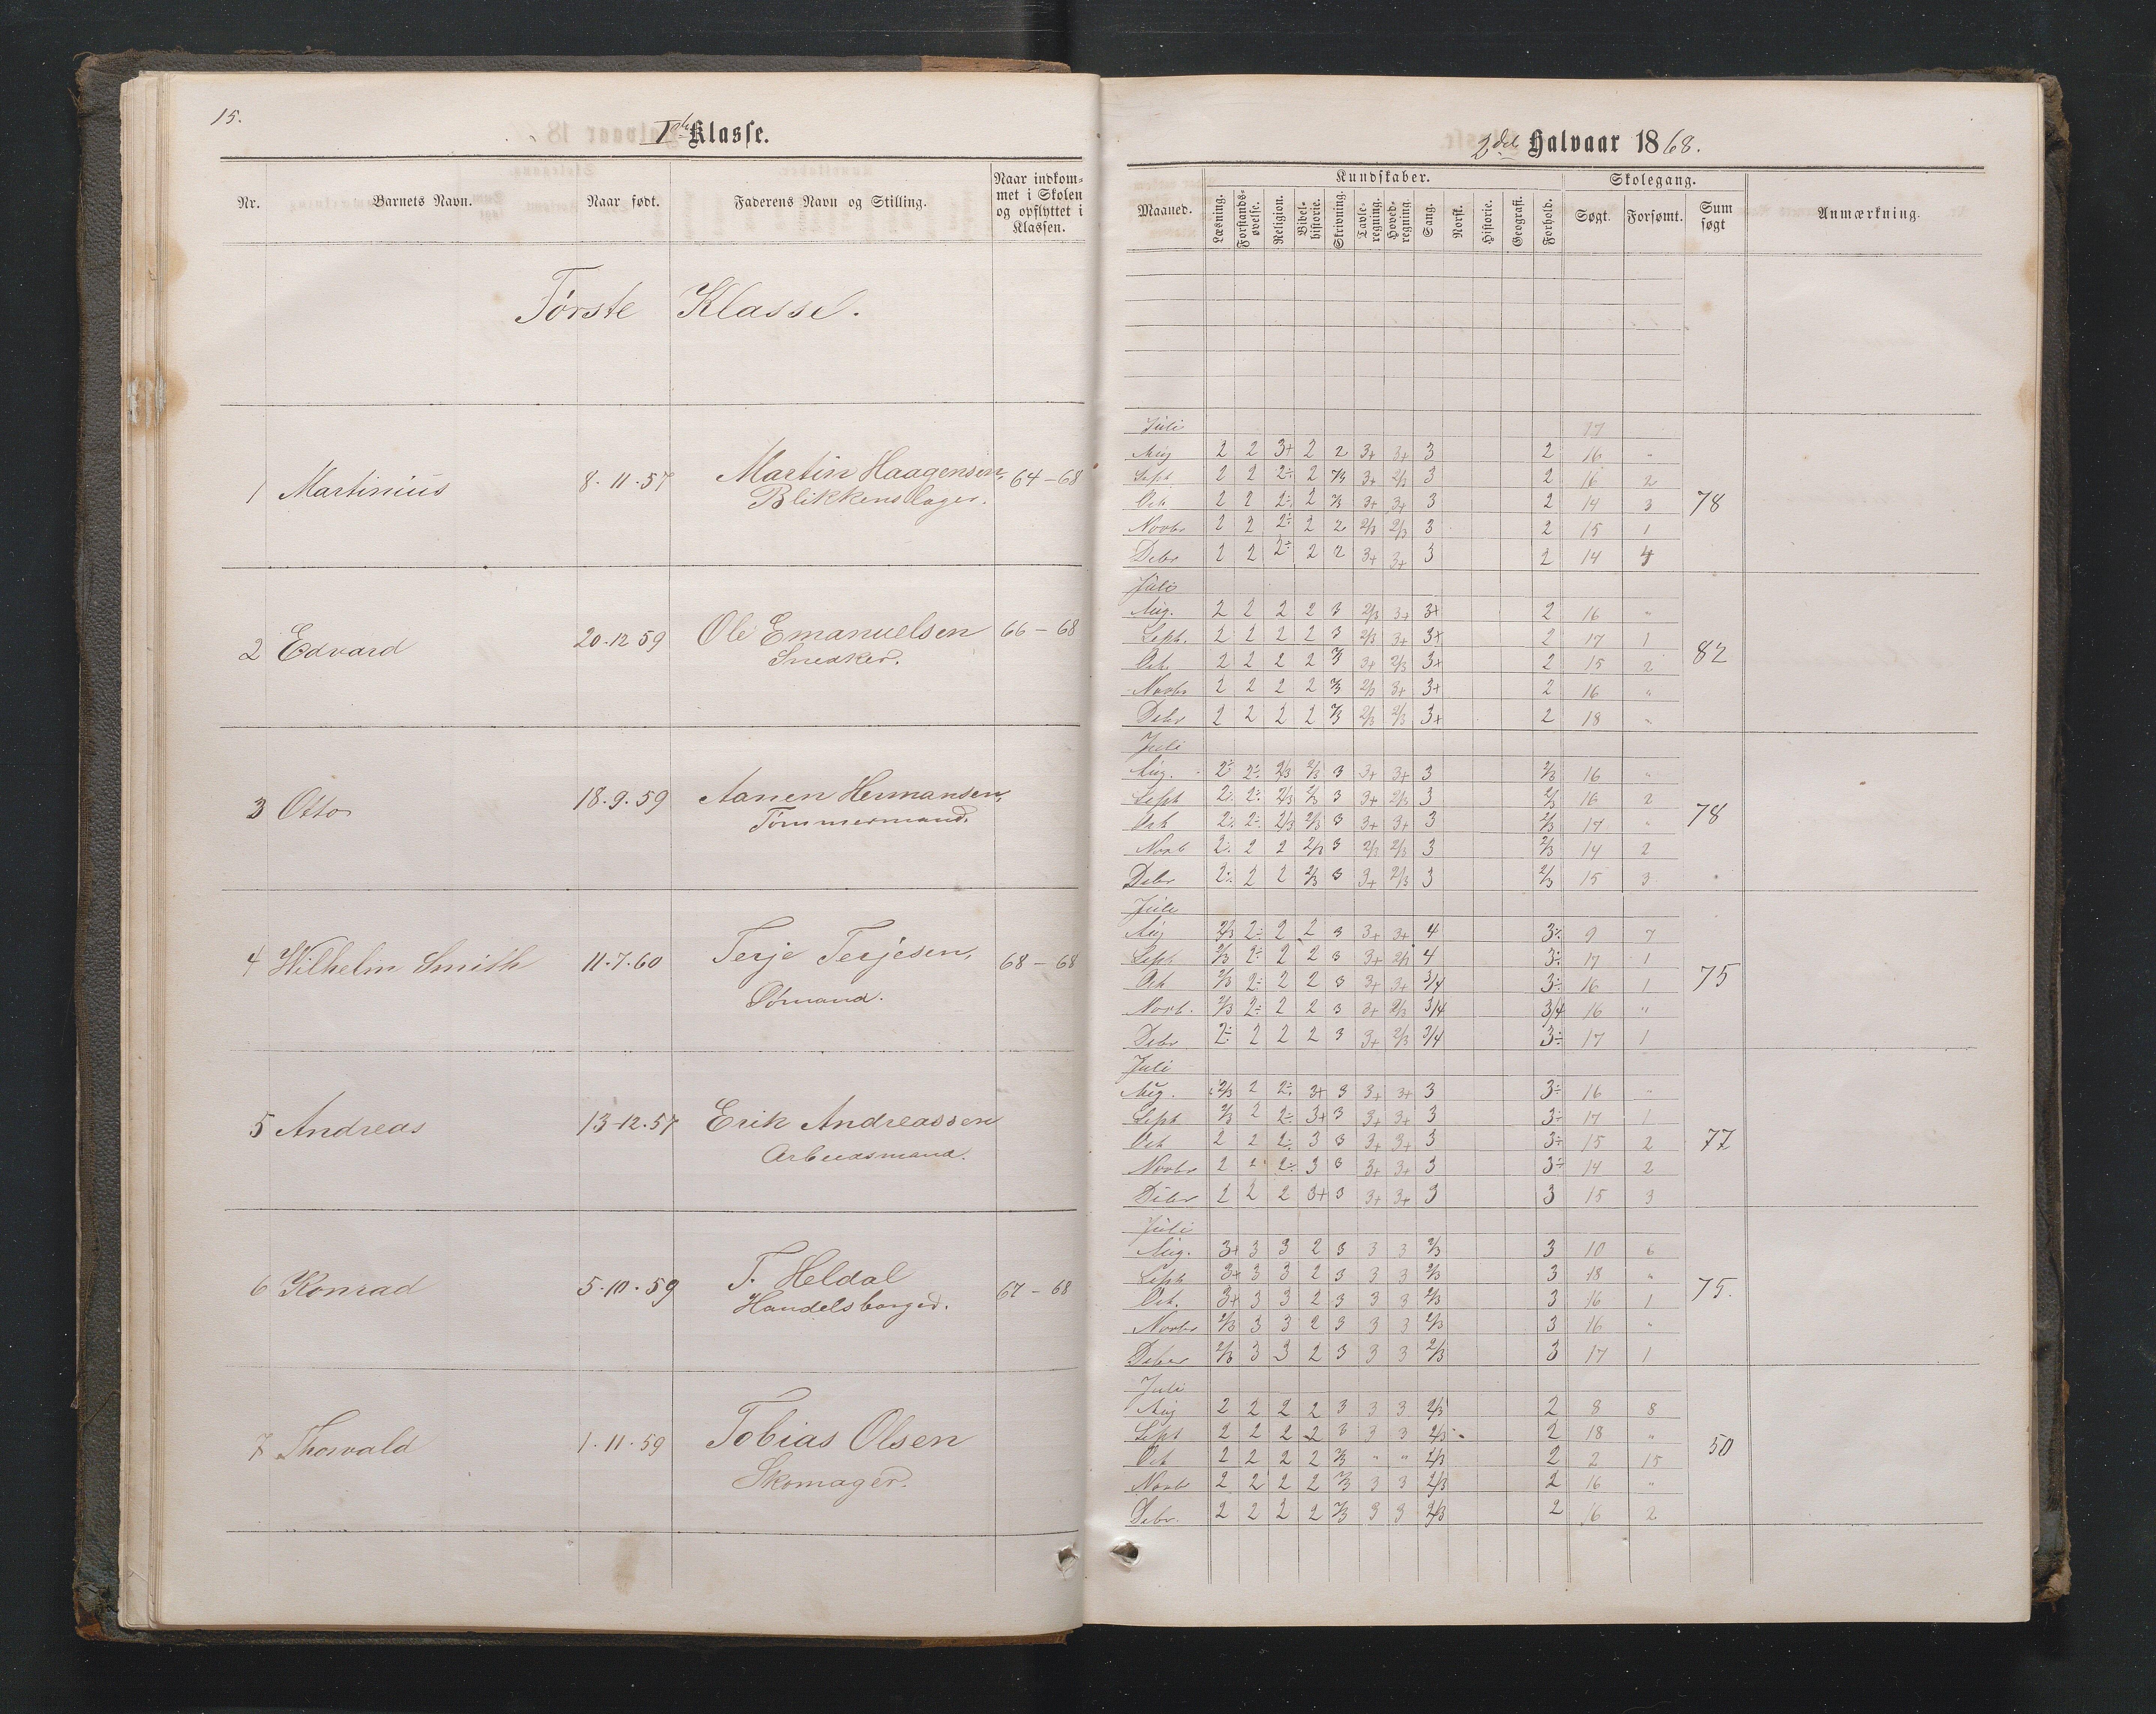 15.
Iste Klasse.
Nr. Barnets Navn. Naar født. Faderens Navn og Stilling. Naar indkom-
met i Skolen
og opflyttet i
Klassen.
Første Klasse.
1 Martinius 8-11-57 Martin Haagensen, 64-68
Blikkenslager.
2 Edvard 20-12 59 Ole Emanuelsen 66-68
Snedker.
3 Otto 18.9.59 Aanen Hermansen,
Tømmermand.
4 Wilhelm Smith 11.7.60 Terje Terjesen, 68-68
Sømand.
5 Andreas 13-12.57 Erik Andreassen
Arbeidsmand.
6 Konrad 5-10-59 T. Heldal 67-68
Handelsborger.
7 Thorvald 1-11-59 Tobias Olsen
Skomager.
2det Halvaar 1868.
Maaned. Kundskaber. Skolegang. Sum
søgt Anmærkning.
Læsning. Forstands-
øvelse. Religion. Bibel-
historie. Skrivning. Tavle-
regning. Hoved-
regning. Sang. Norsk. Historie. Geografi. Forhold. Søgt. Forsømt.
Juli 17
Aug 2 2 3+ 2 2 3+ 3+ 3 2 16 "
Sept 2 2 2÷ 2 2/3 3+ 2/3 3 2 16 2
Oct. 2 2 2÷ 2 2/3 3+ 3+ 3 2 14 3 78
Novbr 2 2 2÷ 2 2 2/3 2/3 3 2 15 1
Debr 2 2 2÷ 2 2 3+ 3+ 3 2 14 4
Juli
Aug. 2 2 2 2 3 2/3 3+ 3+ 2 16 "
Sept. 2 2 2 2 3 2/3 3+ 3+ 2 17 1
Oct. 2 2 2 2 2/3 3+ 2/3 3+ 2 15 2 82
Novbr 2 2 2 2 2/3 2/3 3+ 3+ 2 16 "
Debr 2 2 2 2 2/3 2/3 2/3 3+ 2 18 "
Juli
Aug. 2÷ 2÷ 2/3 2/3 3 3+ 3+ 3 2/3 16 "
Sept 2÷ 2÷ 2/3 2/3 3 3+ 2/3 3 2/3 16 2
Oct 2÷ 2÷ 2/3 2/3 3 3+ 3+ 3 2/3 17 " 78
Novb 2÷ 2 2 2/3 3 2/3 2/3 3 2/3 14 2
Debr 2÷ 2 2 2/3 3 3+ 2/3 3 2/3 15 3
Juli
Aug 2/3 2÷ 2 2 3 3+ 3+ 4 3÷ 9 7
Sept 2/3 2÷ 2 2 3 3+ 2/3 4 3÷ 17 1
Oct 2/3 2÷ 2 2 3 3+ 3+ 3/4 3÷ 16 1 75
Novb. 2/3 2÷ 2 2 3 3+ 2/3 3/4 3/4 16 "
Debr 2÷ 2 2 2 3 3+ 2/3 3/4 3÷ 17 1
Juli
Aug. 2/3 2 2÷ 3+ 3 3+ 3+ 3 3÷ 16 "
Sept 2/3 2 2÷ 3+ 3 3+ 3+ 3 3÷ 17 1
Oct 2 2 2÷ 3 3 3+ 3+ 3 3÷ 15 2 77
Novbr 2 2 2÷ 3 3 3+ 3+ 3 3÷ 14 2
Debr 2 2 2 3+ 3 3+ 3+ 3 3 15 3
Juli
Aug. 3+ 3 3 2 3 3 3 2/3 3 10 6
Sept 3+ 3 3 2 3 3 3 2/3 3 18 "
Oct. 3+ 3 3 2 3 3 3 2/3 3 16 1 75.
Novbr 2/3 3 3 2 3 3 3 2/3 3 16 "
Deber 2/3 3 3 2 3 3 3 2/3 3 17 1
Juli
Aug 2 2 2 2 3 3 3 2/3 2 8 8
Sept 2 2 2 2 3 3 3 2/3 2 18 "
Oct 2 2 2 2 2/3 " " 2/3 2 2 15 50
Novb 2 2 2 2 2/3 3 3 2/3 2 16 "
Debr. 2 2 2 2 2/3 3 3 2/3 2 16 2